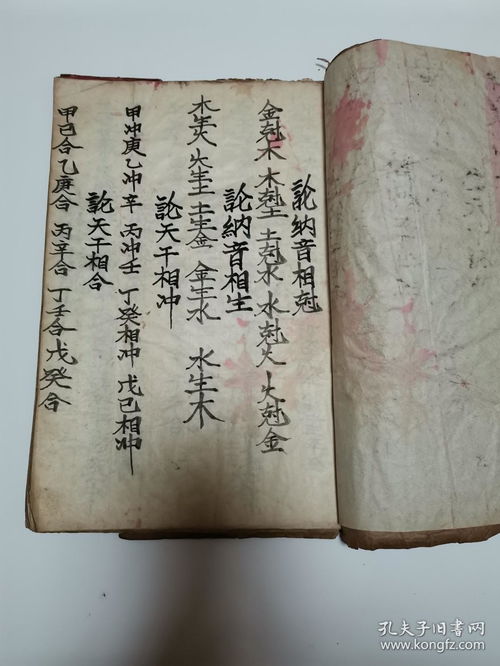 論納音相尅
金尅木 木尅土 土尅水 水尅火 火尅金
論納音相生
木生火 火生土 土生金 金生水 水生木
論天干相冲
甲冲庚 乙冲辛 丙冲壬 丁癸相冲 戊己相冲
論天干相合
甲己合 乙庚合 丙辛合 丁壬合 戊癸合
孔夫子旧书网
www.kongfz.com